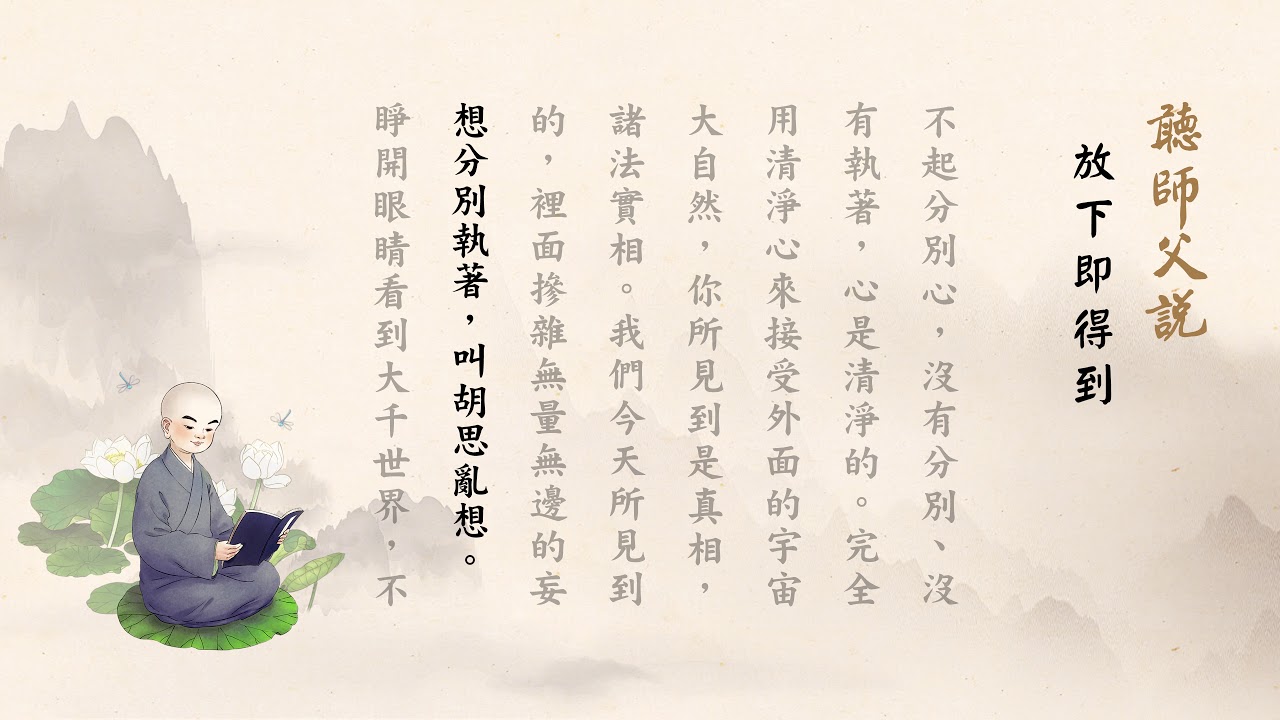 聽師父説
放下即得到
不起分別心，沒有分別、沒
有執著，心是清淨的。完全
用清淨心來接受外面的宇宙
大自然，你所見到是真相，
諸法實相。我們今天所見到
的，裡面摻雜無量無邊的妄
想分別執著，叫胡思亂想。
睜開眼睛看到大千世界，不